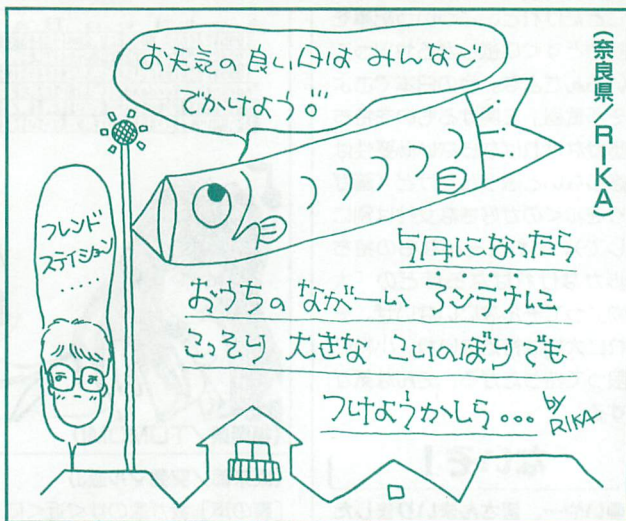 (奈良県/RIKA)
お天気の良い日は みんなで
でかけよう!!
フレンド
ステイション
......
5月になったら
おうちの ながーい アンテナに
こっそり 大きな こいのぼりでも
つけようかしら...
by
RIKA